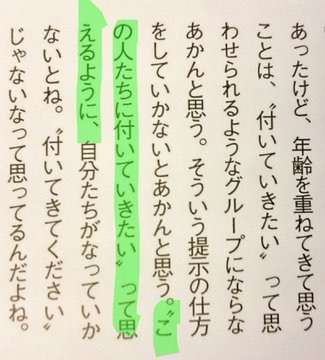 あったけど、年齢を重ねてきて思う
ことは、〝付いていきたい〟って思
わせられるようなグループにならな
あかんと思う。そういう提示の仕方
をしていかないとあかんと思う。〝こ
の人たちに付いていきたい〟って思
えるように、自分たちがなっていか
ないとね。〝付いてきてください〟
じゃないなって思ってるんだよね。